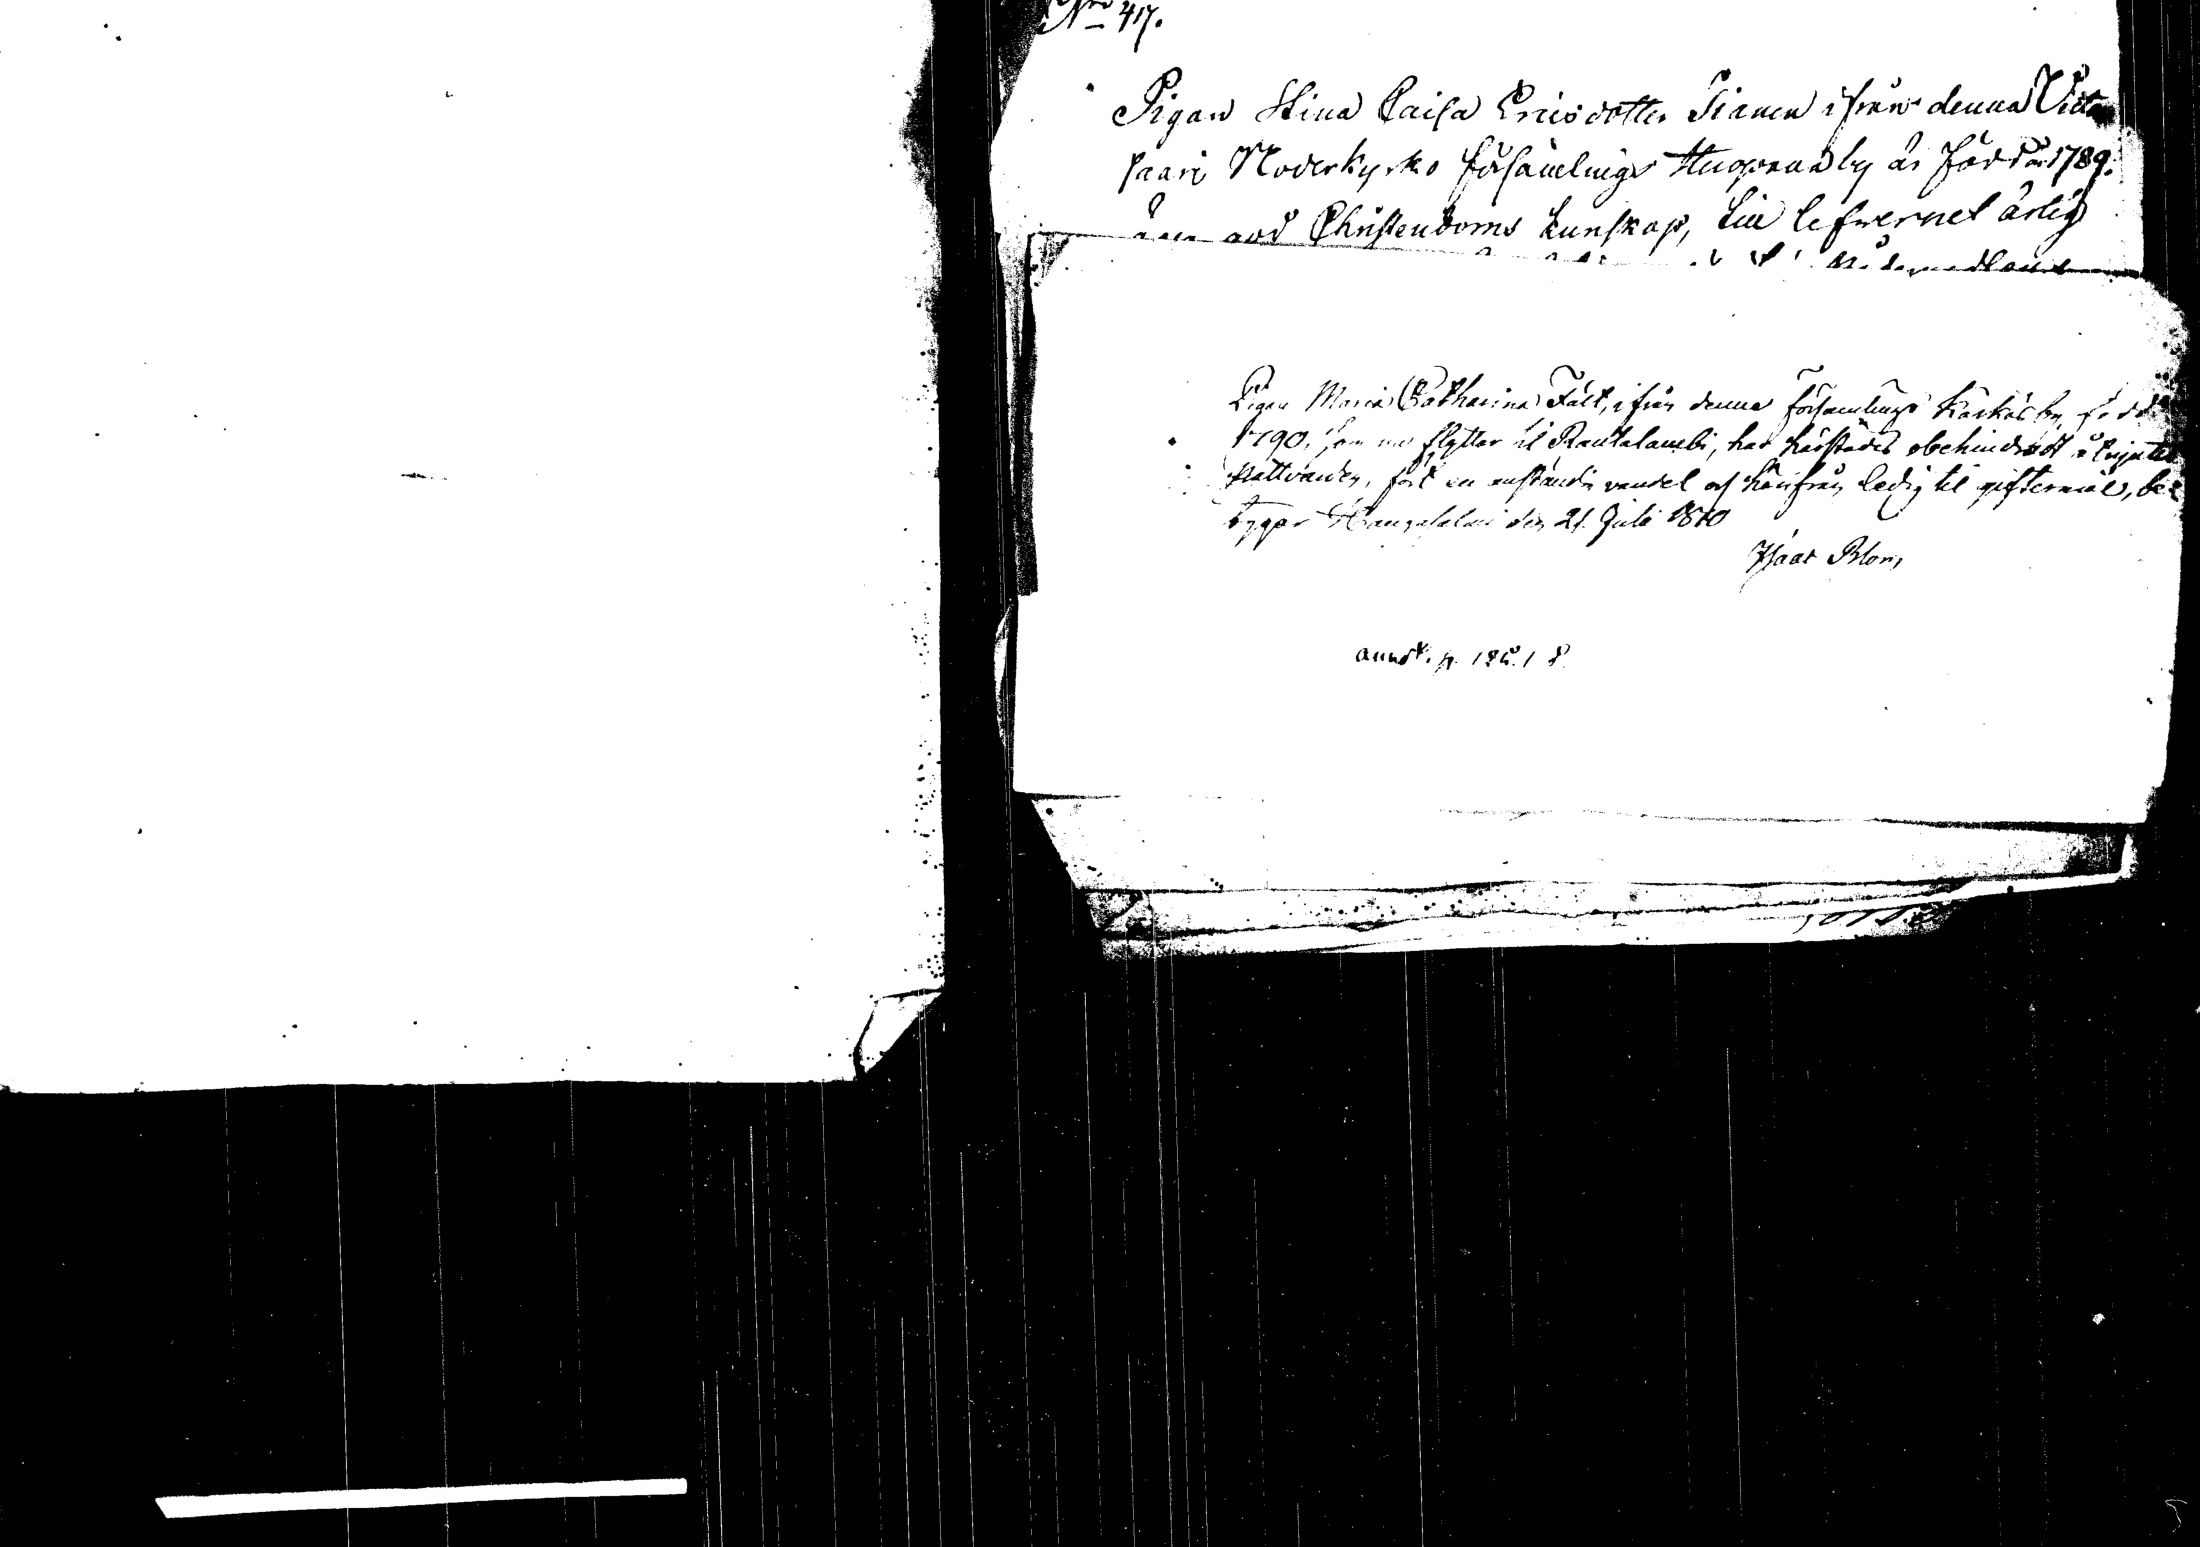 Nro 417.
Pigan Stina Caisa Ericsdotter Tianen ifrån denna Vita
saari Moderkyrko församlings by är född år 1789.
god Christendoms kunskap, till lefvernet ärlig
Pigan Maria Catharina Fält, ifrån denna församlings Kärkäs by, född
1790, som nu flyttar til Rautalambi, har härstädes obehindradt åtnjutit
Nattvarden, fört en anständig vandel och härifrån ledig til giftermål, be-
tygar Haugasalmi den 21. Juli 1810
Isaac Blom
annot. p.